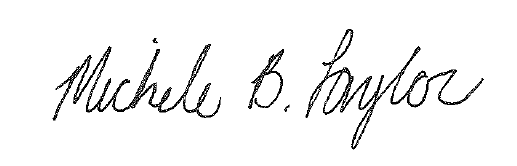 Michele B. Taylor